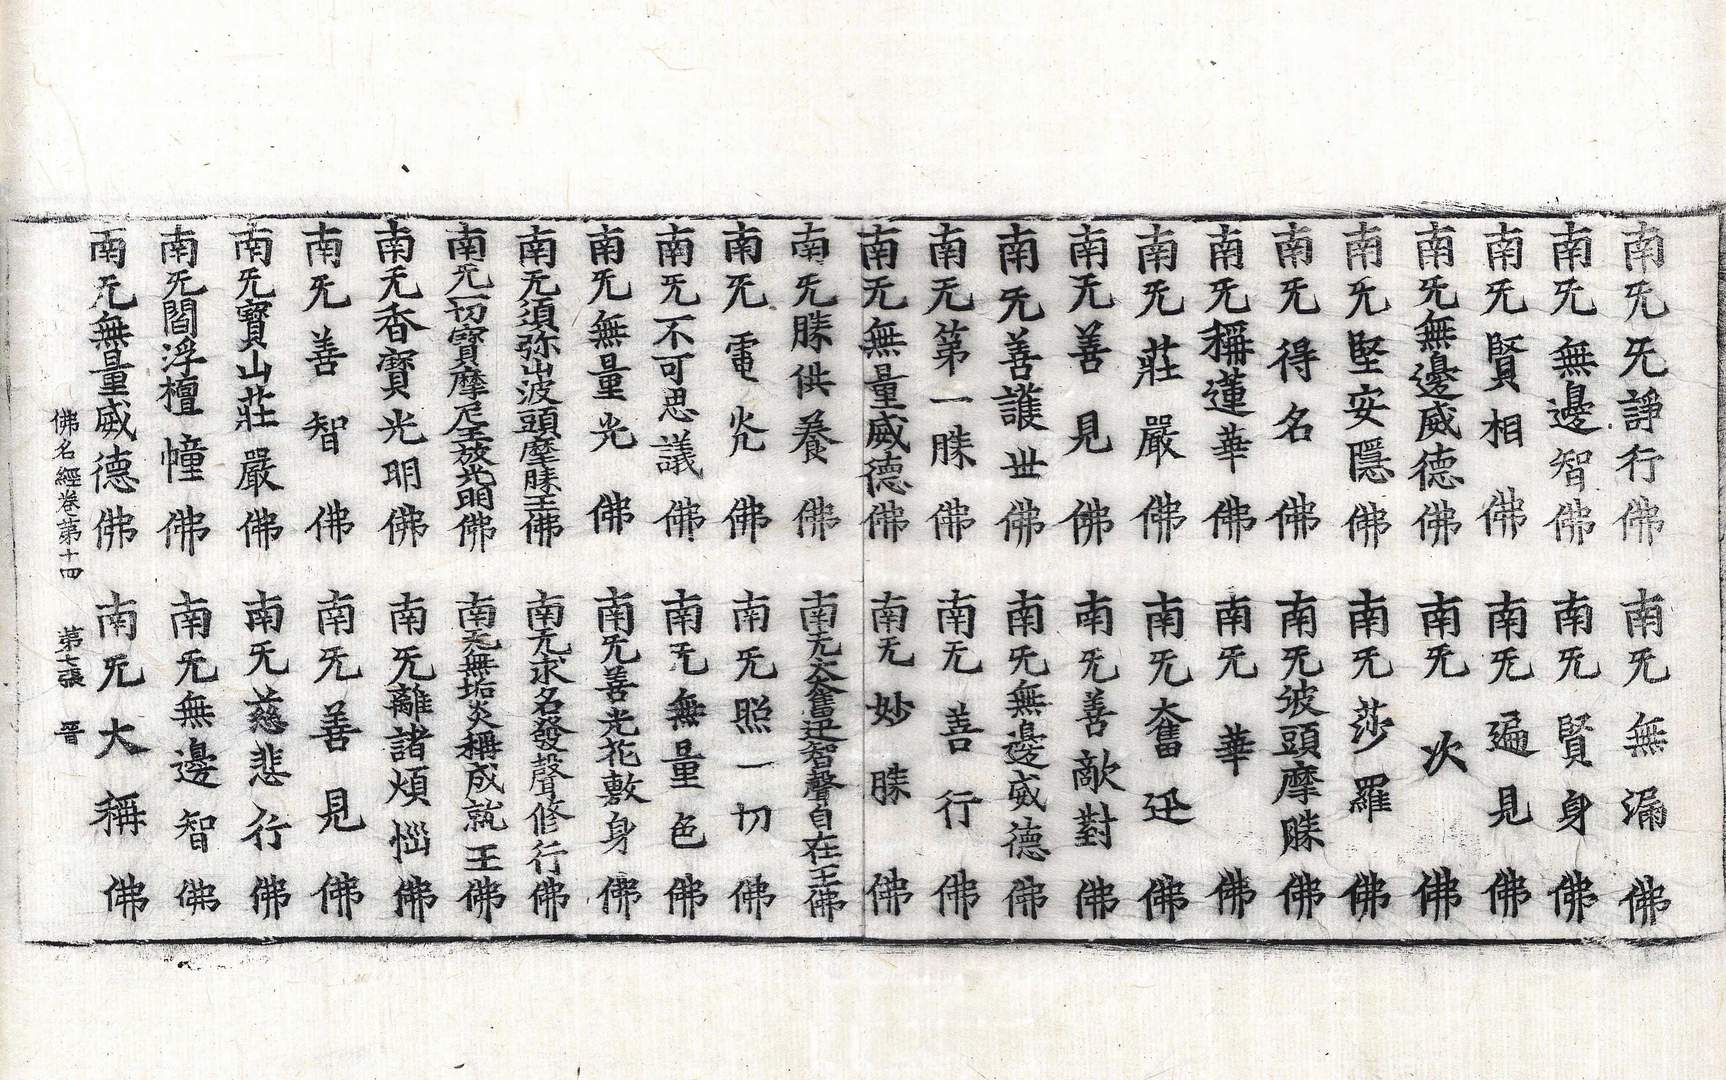 南无无諍行佛　南无無漏佛
南无無邊智佛　南无賢身佛
南无賢相佛　南无遍見佛
南无無邊威德佛　南无次佛
南无堅安隱佛　南无莎羅佛
南无得名佛　南无波頭摩勝佛
南无稱蓮華佛　南无華佛
南无莊嚴佛　南无大奮迅佛
南无善見佛　南无善敵對佛
南无善護世佛　南无無邊威德佛
南无第一勝佛　南无善行佛
南无無量威德佛　南无妙勝佛
南无勝供養佛　南无大奮迅智聲自在王佛
南无電光佛　南无照一切佛
南无不可思議佛　南无無量色佛
南无無量光佛　南无善光花敷身佛
南无須弥山波頭摩勝王佛　南无求名發聲修行佛
南无一切寶摩尼王放光明佛　南无無垢炎稱成就王佛
南无香寶光明佛　南无離諸煩惱佛
南无善智佛　南无善見佛
南无寶山莊嚴佛　南无慈悲行佛
南无閻浮檀幢佛　南无無邊智佛
南无無量威德佛　南无大稱佛
佛名經卷第十四　第七張　晉